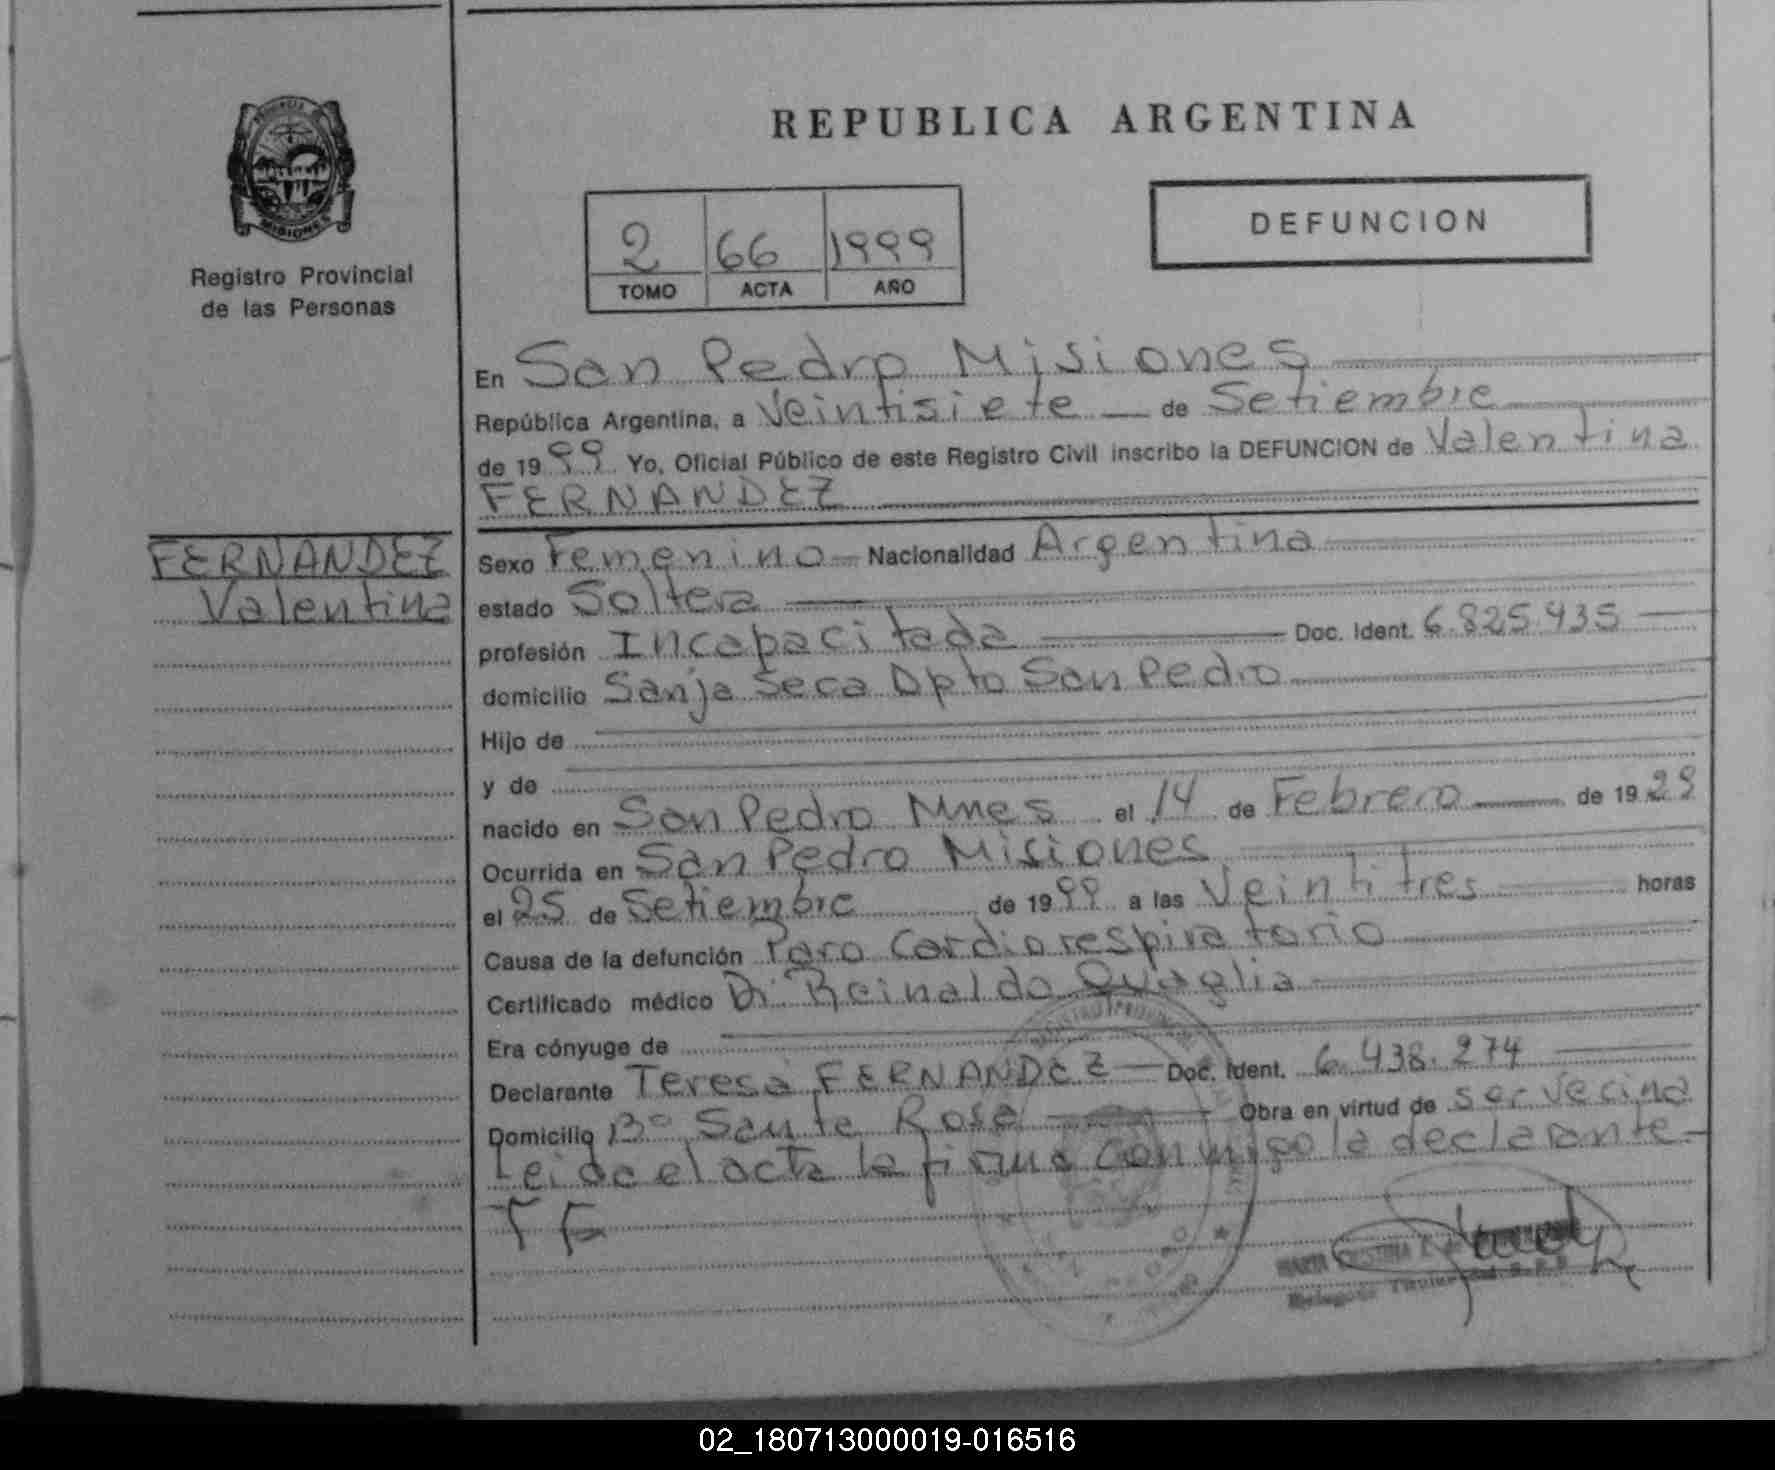 PROVINCIA DE
MISIONES
Registro Provincial
de las Personas
REPUBLICA ARGENTINA
2 66 1999
TOMO ACTA AÑO
DEFUNCION
En San Pedro Misiones
República Argentina, a Veintisiete de Setiembre
de 1999 Yo, Oficial Público de este Registro Civil inscribo la DEFUNCION de Valentina
FERNANDEZ
FERNANDEZ
Valentina
Sexo Femenino Nacionalidad Argentina
estado Soltera
profesión Incapacitada Doc. Ident. 6.825.935
domicilio Sanja Seca Dpto San Pedro
Hijo de
y de
nacido en San Pedro Mnes el 14 de Febrero de 1929
Ocurrida en San Pedro Misiones
el 25 de Setiembre de 1999 a las Veintitres horas
Causa de la defunción Paro Cardiorespiratorio
Certificado médico Dr. Reinaldo Quaglia
Era cónyuge de
Declarante Teresa FERNANDEZ Doc. Ident. 6.438.274
Domicilio Bº Santa Rosa Obra en virtud de ser vecina
Leida el acta la firma conmigo la declarante
T F
02_180713000019-016516